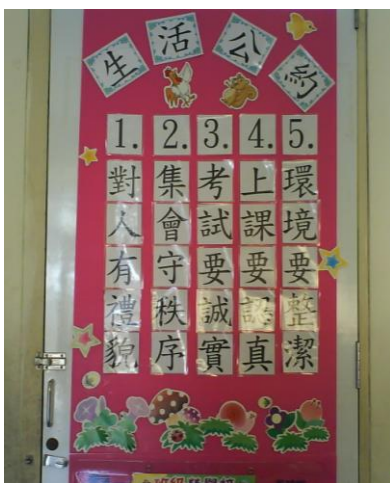 生活公約
1.對人有禮貌
2.集會守秩序
3.考試要誠實
4.上課要認真
5.環境要整潔